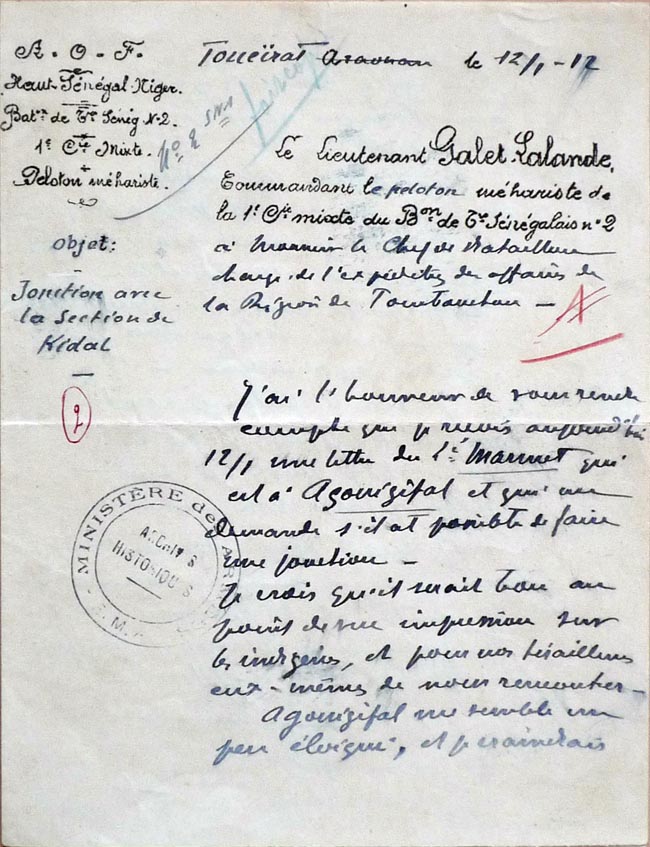 A. O. F.
Haut-Sénégal-Niger.
Bat.on de T.rs Sénég. N.2.
1e Cie Mixte.
Peloton méhariste.
No 2 SNA
Toueïrat Araouan le 12/1-12
Le Lieutenant Galet Lalande,
Commandant le peloton méhariste de
la 1e Cie mixte du Bon de T.rs Sénégalais no 2
à Monsieur le Chef de Bataillon
chargé de l'expédition des affaires de
la Région de Tombouctou —
Objet:
Jonction avec
la section de
Kidal
2
J'ai l'honneur de vous rendre
compte que je reçois aujourd'hui
12/1 une lettre du Lt Marmet qui
est à Agouizifal et qui me
demande s'il est possible de faire
une jonction —
Je crois qu'il serait bon au
point de vue impression sur
les indigènes, et pour nos tirailleurs
eux-mêmes de nous rencontrer —
Agouizifal me semble un
peu éloigné, et je craindrais
MINISTÈRE des AR
ARCHIVES
HISTORIQUES
E.M.